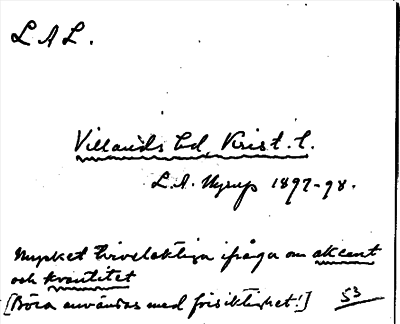 L A L.
Villands hd, Krist. l.
L.A. Nyrup 1897-98.
Mycket tvivelaktiga ifråga om akcent
och kvantitet
[Böra användas med försiktighet!] 53